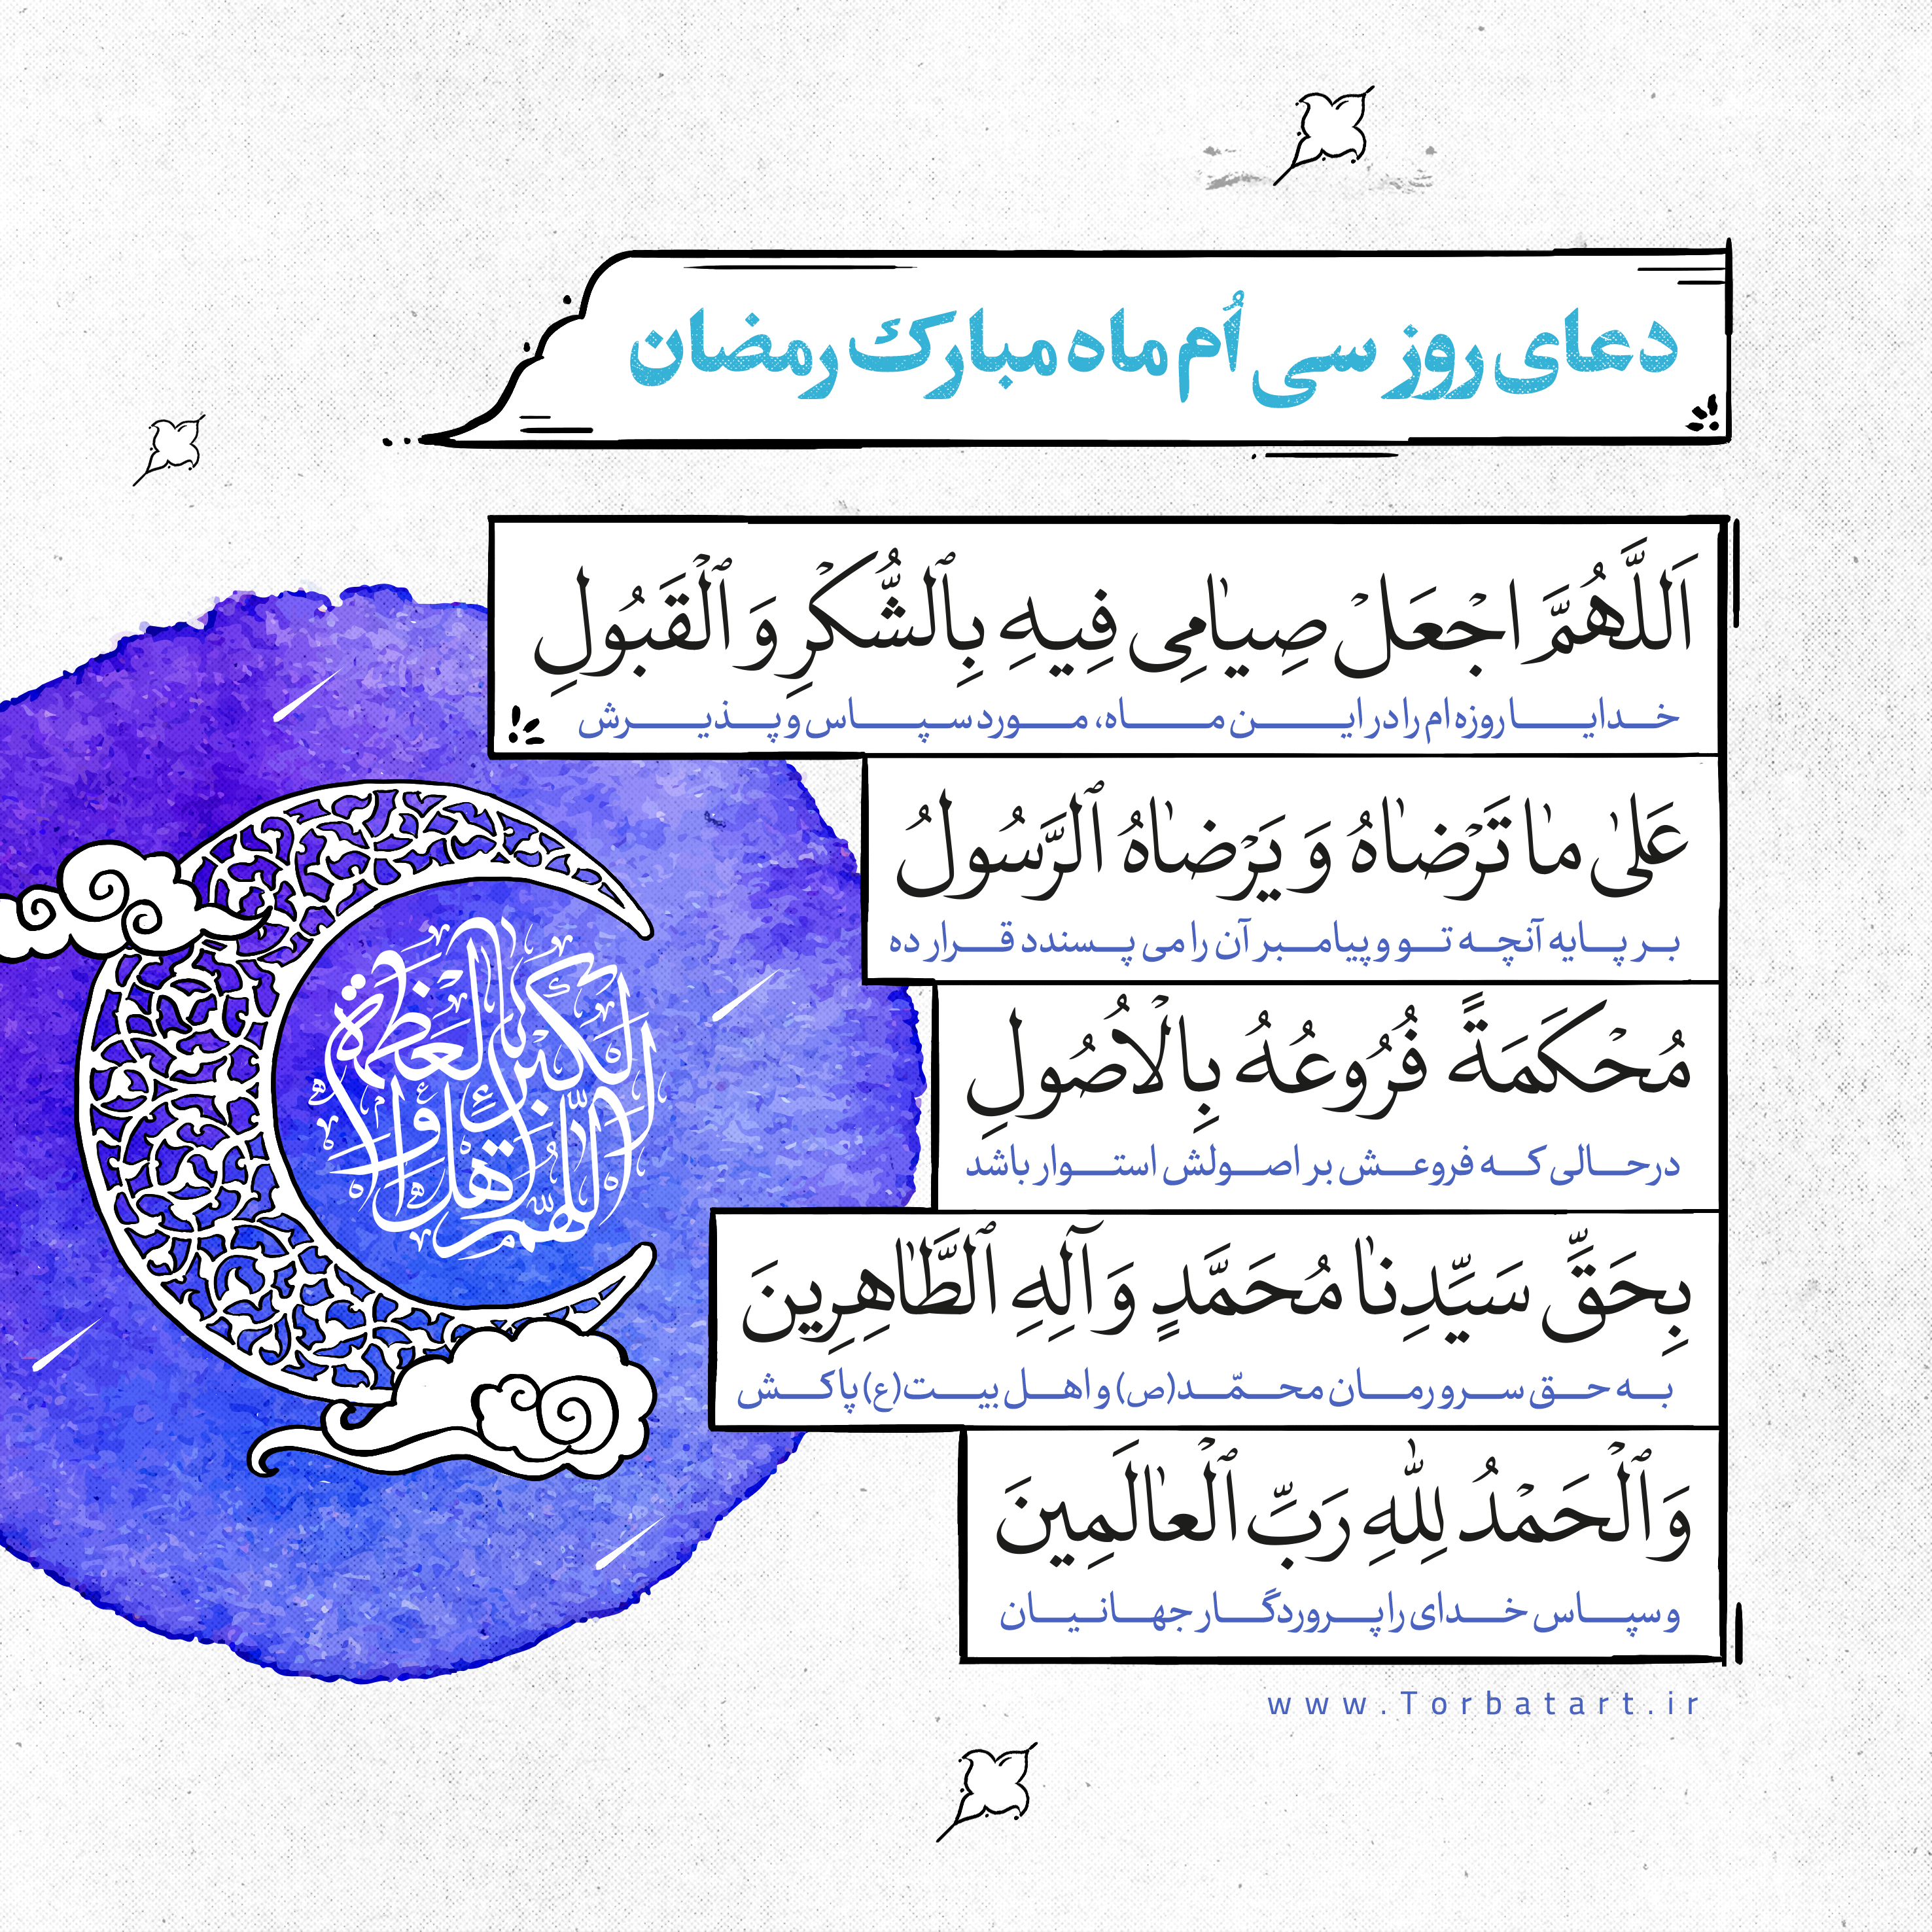 دعای روز سی اُم ماه مبارک رمضان
اَللَّهُمَّ اجْعَلْ صِیٰامِی فِیهِ بِٱلشُّکْرِ وَ ٱلْقَبُولِ
خدایا روزه ام را در این ماه، مورد سپاس و پذیرش
عَلیٰ مٰا تَرْضٰاهُ وَ یَرْضٰاهُ ٱلرَّسُولُ
بر پایه آنچه تو و پیامبر آن را می پسندد قرار ده
مُحْکَمَةً فُرُوعُهُ بِالْاُصُولِ
درحالی که فروعش بر اصولش استوار باشد
بِحَقِّ سَیِّدِنٰا مُحَمَّدٍ وَ آلِهِ ٱلطَّاهِرِینَ
به حق سرورمان محمّد(ص) و اهل بیت(ع) پاکش
وَ ٱلْحَمْدُ لِلّٰهِ رَبِّ ٱلْعٰالَمِینَ
و سپاس خدای را پروردگار جهانیان
www.Torbatart.ir
اللهم اهل الکبریاء و العظمة